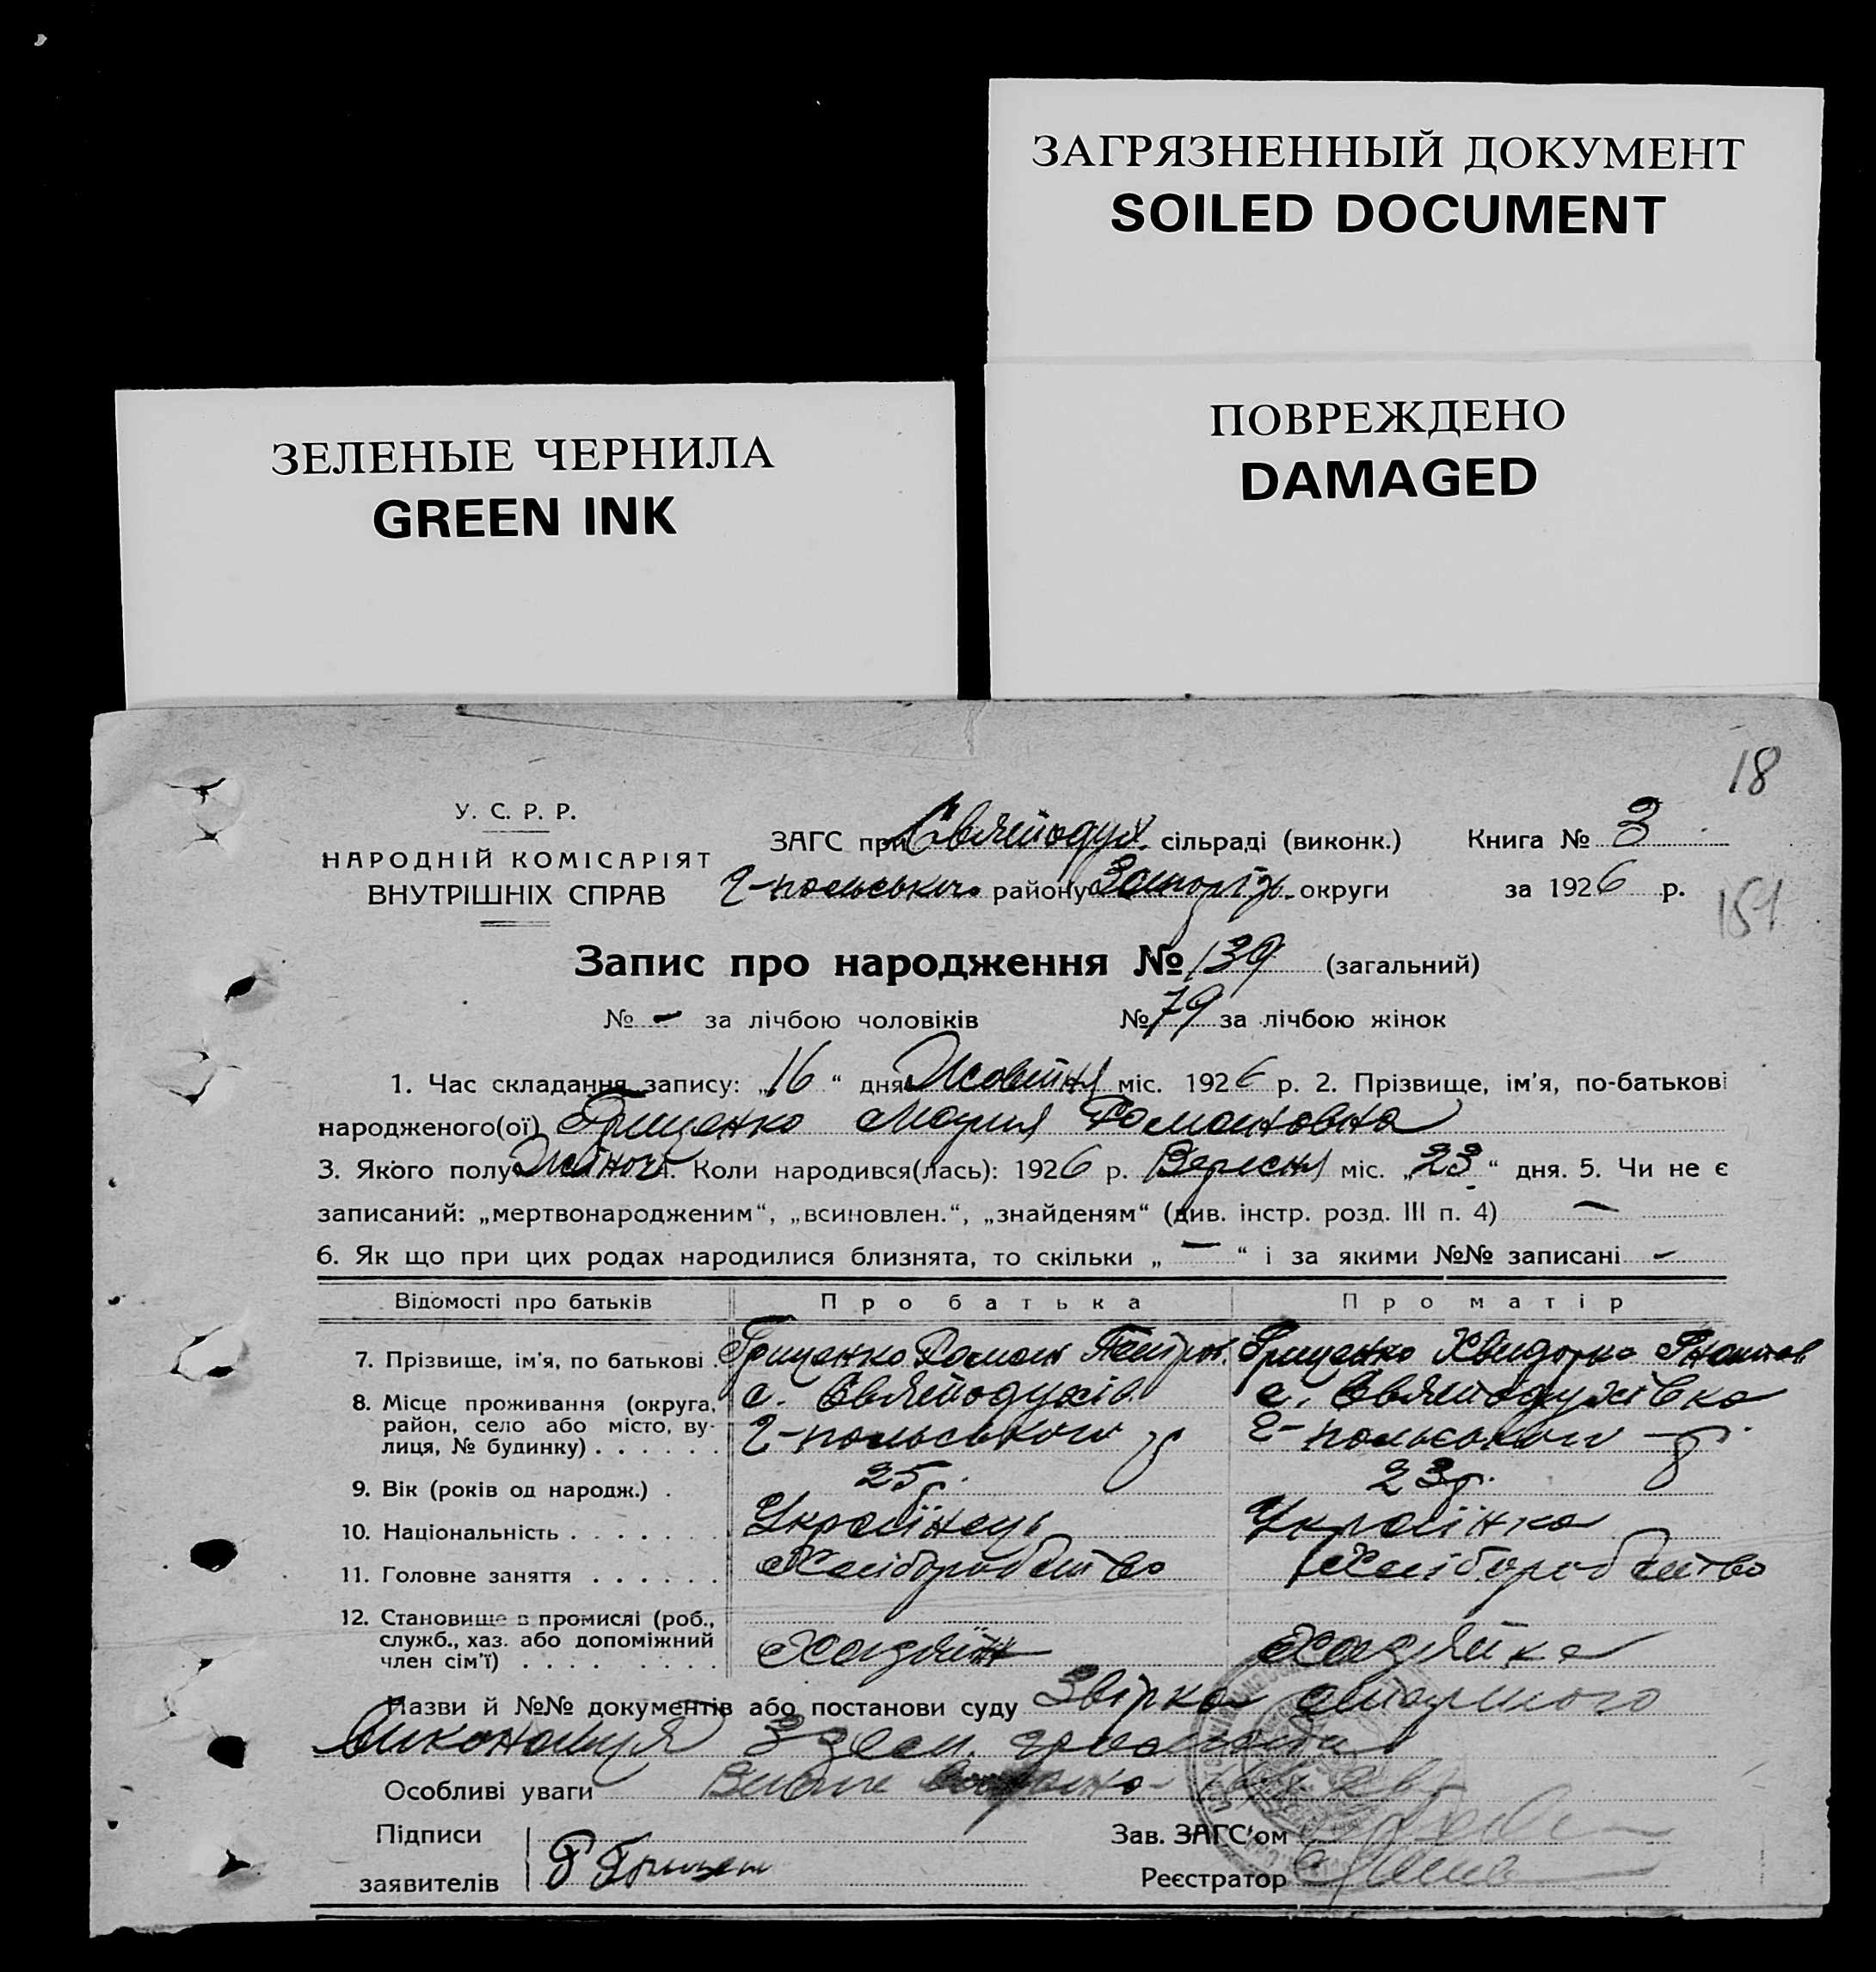 ЗАГРЯЗНЕННЫЙ ДОКУМЕНТ
SOILED DOCUMENT
ПОВРЕЖДЕНО
DAMAGED
ЗЕЛЕНЫЕ ЧЕРНИЛА
GREEN INK
18
У. С. Р. Р.
НАРОДНІЙ КОМІСАРІЯТ
ВНУТРІШНІХ СПРАВ
ЗАГС при Святодух. сільраді (виконк.) Книга № 3
Г-польського району Запоріз. округи за 1926 р.
151
Запис про народження № 139 (загальний)
№ – за лічбою чоловіків № 79 за лічбою жінок
1. Час складання запису: „16“ дня Жовтня міс. 1926 р. 2. Прізвище, ім’я, по-батькові
народженого(ої) Грищенко Мария Романовна
3. Якого полу Жіночі 4. Коли народився(лась): 1926 р. Вересня міс. „23“ дня. 5. Чи не є
записаний: „мертвонародженим“, „всиновлен.“, „знайденям“ (див. інстр. розд. III п. 4) —
6. Як що при цих родах народилися близнята, то скільки „ — “ і за якими №№ записані –
Відомості про батьків Про батька Про матір
7. Прізвище, ім’я, по батькові . Грищенко Роман Петров. Грищенко Хвидорка
8. Місце проживання (округа, с. Святодухів. с. Святодухівка
район, село або місто, ву-
лиця, № будинку) . . . . . . Г-польського р Г-польського р.
9. Вік (років од народж.) . 25 р. 23 р.
10. Національність . . . . . . . Українець Українка
11. Головне заняття . . . . . . Хліборобство Хліборобство
12. Становище в промислі (роб.,
служб., хаз. або допоміжний Хазяїн Хазяйка
член сім’ї) . . . . . . . . .
Назви й №№ документів або постанови суду Звірка
Виконавця 3 десят.
Особливі уваги
Підписи Зав. ЗАГС’ом
заявителів Р Грищен Реєстратор